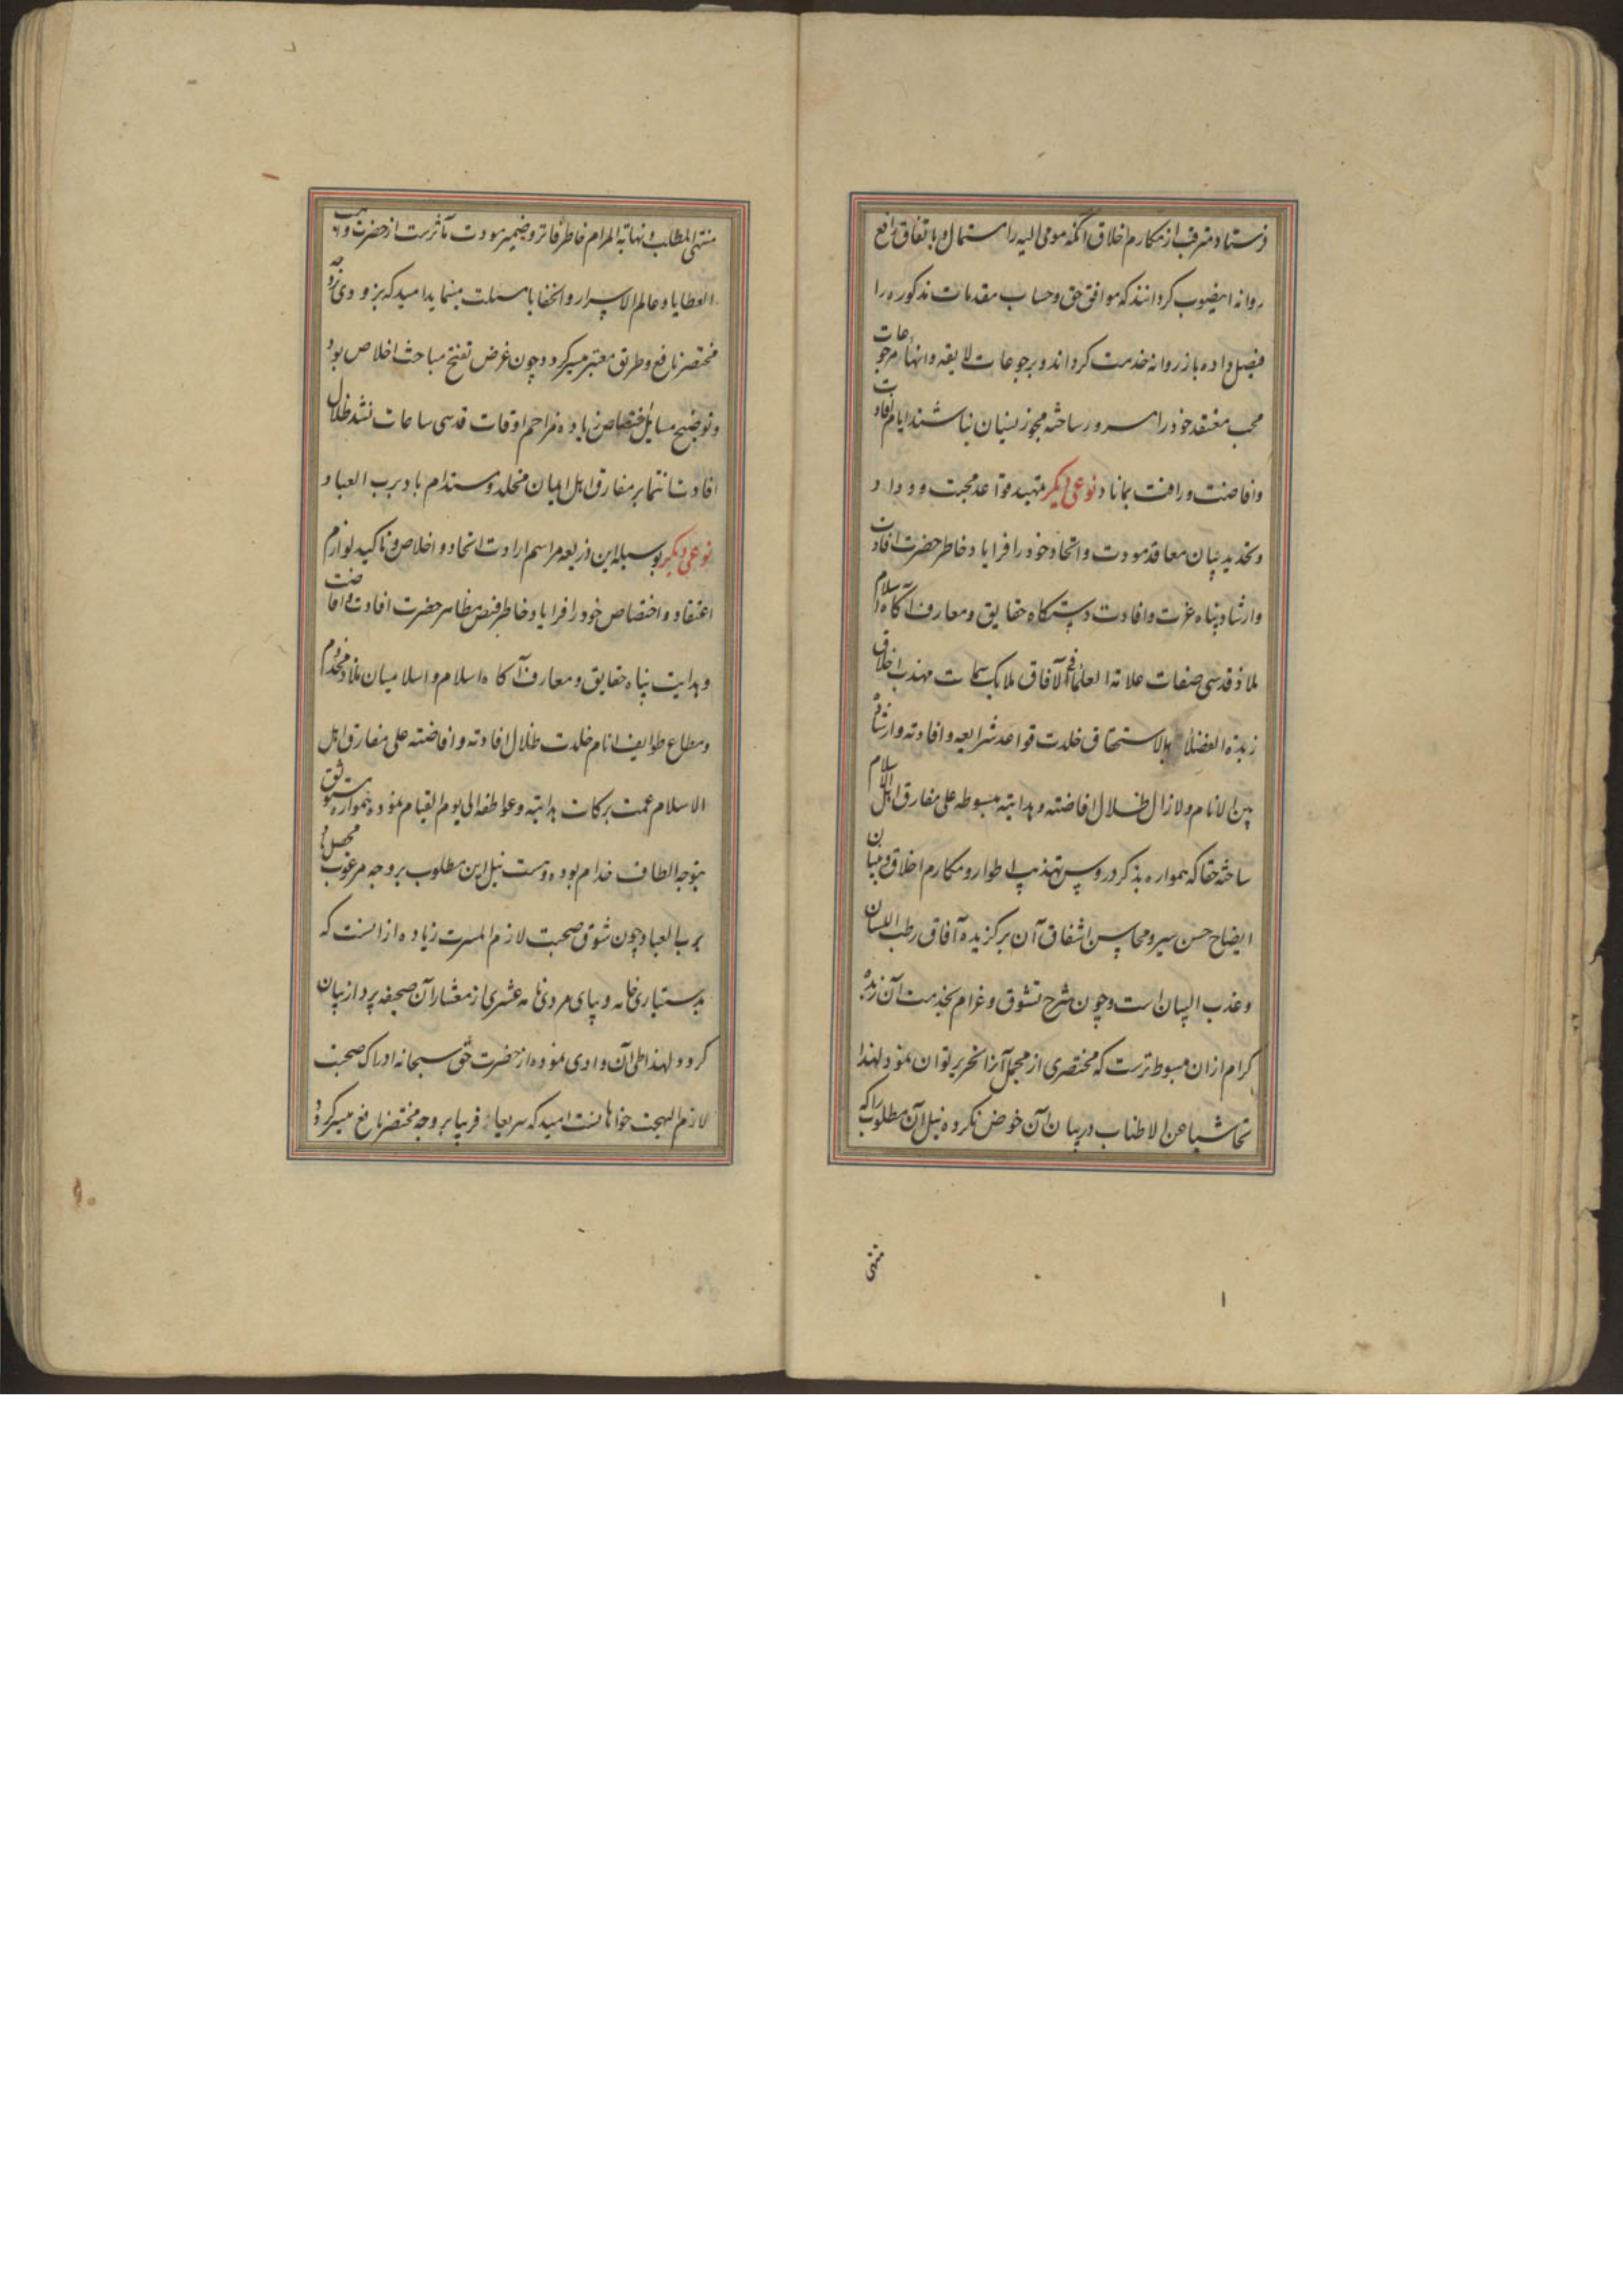 فرستاد مترقب از مکارم اخلاق آنکه مومی الیه را استمال و باتفاق رافع
روانه اینصوب گردانند که موافق حق و حساب مقدمات مذکوره را
فیصل داده باز روانه خدمت گرداند و برجوعات لایقه و انهار مرجوعات
محب معتقد خود را مسرور ساخته مجوز نسیان نباشند ایام افادت
وافاضت و رافت بماناد نوعی دیکر تمهید قواعد محبت و وداد
و تجدید بنیان معاقد مودت و اتحاد خود را فرایاد خاطر حضرت افادت
وارشاد پناه عزت وافادت دستکاه حقایق ومعارف آکاه اسلام
ملاذ قدسی صفات علامة العلماء فی الآفاق ملایک سمات مهذب اخلاق
زبدة الفضلاء بالاستحقاق خلدت قواعد شرایعه وافادته وارشاده
بین الانام ولازال ظلال افاضته وهدایته مبسوطه علی مفارق اهل الاسلام
ساخته حقا که همواره بذکر دروس تهذیب اطوار ومکارم اخلاق و بیان
ایضاح حسن سیر و محاسن اشفاق آن برکزیده آفاق رطب اللسان
وعذب البیان است و چون شرح تشوق و غرام بخدمت آن زبده
کرام ازان مبسوط ترست که مختصری از مجمل آنرا تحریر توان نمود لهذا
تحاشیا عن الاطناب در بیان آن خوض نکرده نیل آن مطلوب را که
منتهی
منتهی المطلب و نهایة المرام خاطر فاتر و ضمیر مودت مآثرست از حضرت واهب
العطایا و عالم الاسرار والخفایا مسئلت مینماید امید که بزودی بر وجه
مختصر نافع وطریق معتبر میسر کردد و چون غرض تفتح مباحث اخلاص بود
و توضیح مسایل اختصاص زیاده مزاحم اوقات قدسی ساعات نشد ظلال
افادت انتما بر مفارق اهل ایمان مخلد و مستدام باد برب العباد
نوعی دیکر بوسیله این ذریعه مراسم ارادت اتحاد و اخلاص و تاکید لوازم
اعتقاد و اختصاص خود را فرایاد خاطر فیض مظاهر حضرت افادت وافاضت
وهدایت پناه حقایق ومعارف آکاه اسلام و اسلامیان ملاذ مخدوم
ومطاع طوایف انام خلدت ظلال افادته وافاضته علی مفارق اهل
الاسلام عمت برکات هدایته وعواطفه الی یوم القیام نموده همواره مستوثق
بتوجه الطاف خدام بوده و هست نیل این مطلوب بر وجه مرغوب محصل باد
برب العباد چون شوق صحبت لازم المسرت زیاده ازانست که
بدستیاری خامه و پای مردی نامه عشری از معشار آن صحیفه پرداز بیان
کردد لهذا طی آن وادی نموده از حضرت حق سبحانه ادراک صحبت
لازم البهجت خواهانست امید که سریعا قریبا بر وجه مختصر نافع میسر کردد